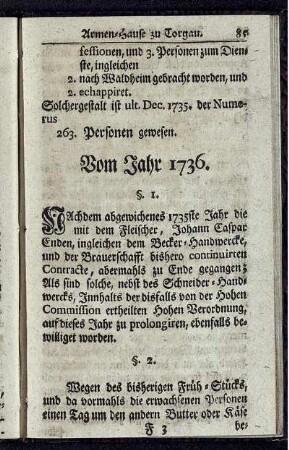 Armen-Hause zu Torgau. 85
sessionen, und 3. Personen zum Dien-
ste, ingleichen
2. nach Waldheim gebracht worden, und
2. echappiret.
Solchergestalt ist ult. Dec. 1735. der Nume-
rus
263. Personen gewesen.
Vom Jahr 1736.
§. 1.
Nachdem abgewichenes 1735ste Jahr die
mit dem Fleischer, Johann Caspar
Enden, ingleichen dem Becker-Handwercke,
und der Brauerschafft bishero continuirten
Contracte, abermahls zu Ende gegangen;
Als sind solche, nebst des Schneider-Hand-
wercks, Innhalts der disfalls von der Hohen
Commission ertheilten Hohen Verordnung,
auf dieses Jahr zu prolongiren, ebenfalls be-
williget worden.
§. 2.
Wegen des bisherigen Früh-Stücks,
und da vormahls die erwachsenen Personen
einen Tag um den andern Butter oder Käse
F 3 be-